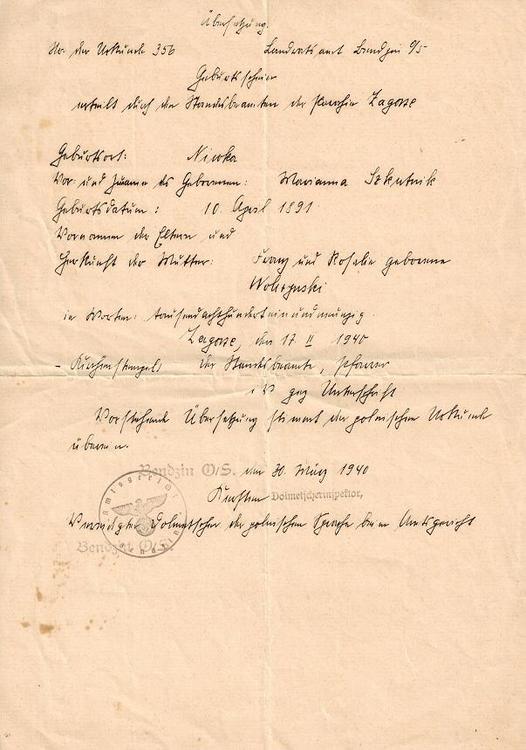 Übersetzung.
Nr. der Urkunde 356 Landratsamt Bendzin O/S
Geburtsschein
erteilt durch den Standesbeamten der Parochie Zagosze
Geburtsort: Niwka
Vor- und Zuname des Geborenen: Marianna Skutnik
Geburtsdatum: 10. April 1891
Vornamen der Eltern und
Herkunft der Mutter: Franz und Rosalie geborene
in Worten: tausendachthunderteinundneunzig.
Zagosze, den 17 II 1940
- Kirchenstempel der Standesbeamte, Pfarrer
i.V. gez Unterschrift
Vorstehende Übersetzung stimmt der polnischen Urkunde
überein.
Bendzin O/S. am 30. März 1940
Dolmetscherinspektor,
Vereidigter Dolmetscher der polnischen Sprache beim Amtsgericht
Bendzin O/S.
Amtsgericht